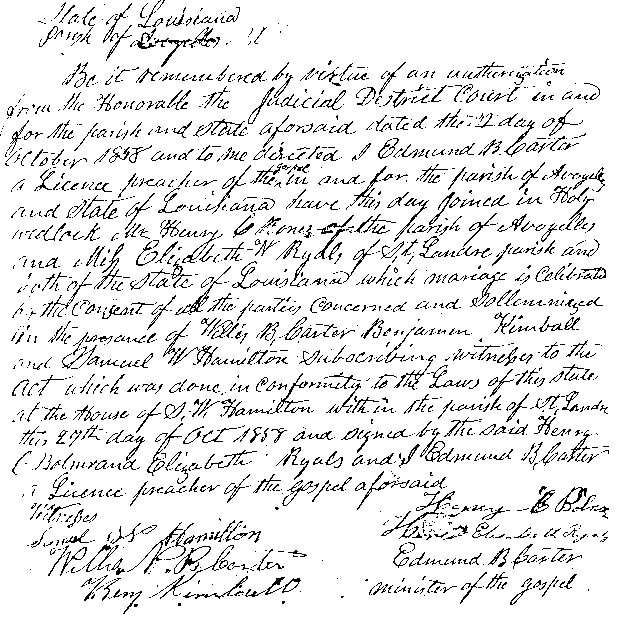 State of Louisiana
Parish of Avoyelles
Be it remembered by virtue of an autherization
from the Honorable the Judicial District Court in and
for the parish and state aforsaid dated the 2 day of
October 1858 and to me directed I Edmund B Carter
a Licence preacher of the gospel in and for the parish of Avoyelles
and State of Louisiana have this day joined in Holy
wedlock Mr Henry C of the parish of Avoyelles
and Miss Elizabeth W Ryals of St, Landre parish and
both of the State of Louisiana which mariage is Celibrated
by the Consent of all the parties Concerned and Sollemnized
in the presance of Willis B, Carter Benjamen Kimball
and Samuel W Hamilton Subscribing witnesses to the
act which was done in Conformity to the Laws of this state
at the House of S, W, Hamilton with in the parish of St, Landre
this 27th day of Oct 1858 and signed by the said Henry
C and Elizabeth Ryals and I Edmund B, Carter
a Licence preacher of the gospel aforsaid
Witnesses
Henry C
Saml W Hamilton
Elizabeth Ryals
Willis B Carter
Edmund B Carter
Benj Kimball
minister of the gospel